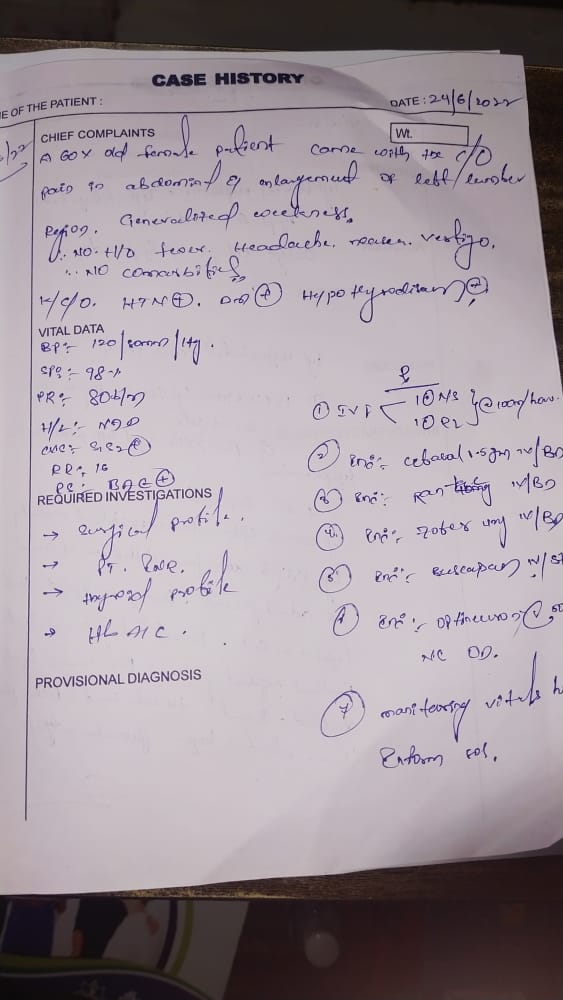 CASE HISTORY
E OF THE PATIENT :
DATE : 24/6/2022
CHIEF COMPLAINTS
Wt.
A 60Y old female patient came with the c/o
pain in abdominal & enlargement of left/lumber
Region. Generalized weekness.
∴ NO. H/O fever. Headache. vertigo.
∴ NO comorbities
K/C/O. HTN (+). DM (+) Hypothyrodism (+)
VITAL DATA
BP:- 120/80mm/Hg.
SPO2:- 98%
PR:- 80b/m
H/L:- NAD
CVS:- S1S2 (+)
RR:- 16
RS:- BAE (+)
REQUIRED INVESTIGATIONS
→ Surgical profile.
→ PT. INR.
→ thyroid profile
→ Hb A1C.
PROVISIONAL DIAGNOSIS
① IVF 1 NS
1 RL @100ml/hour.
② Inj:- 1.5gm IV/BD
③ Inj:- Ran IV/BD
④ Inj:- Zofer 4mg IV/BD
⑤ Inj:- Buscopan IV/S
Inj:- Optineuron
NS OD.
⑦ monitoring vitals h
Inform sos.